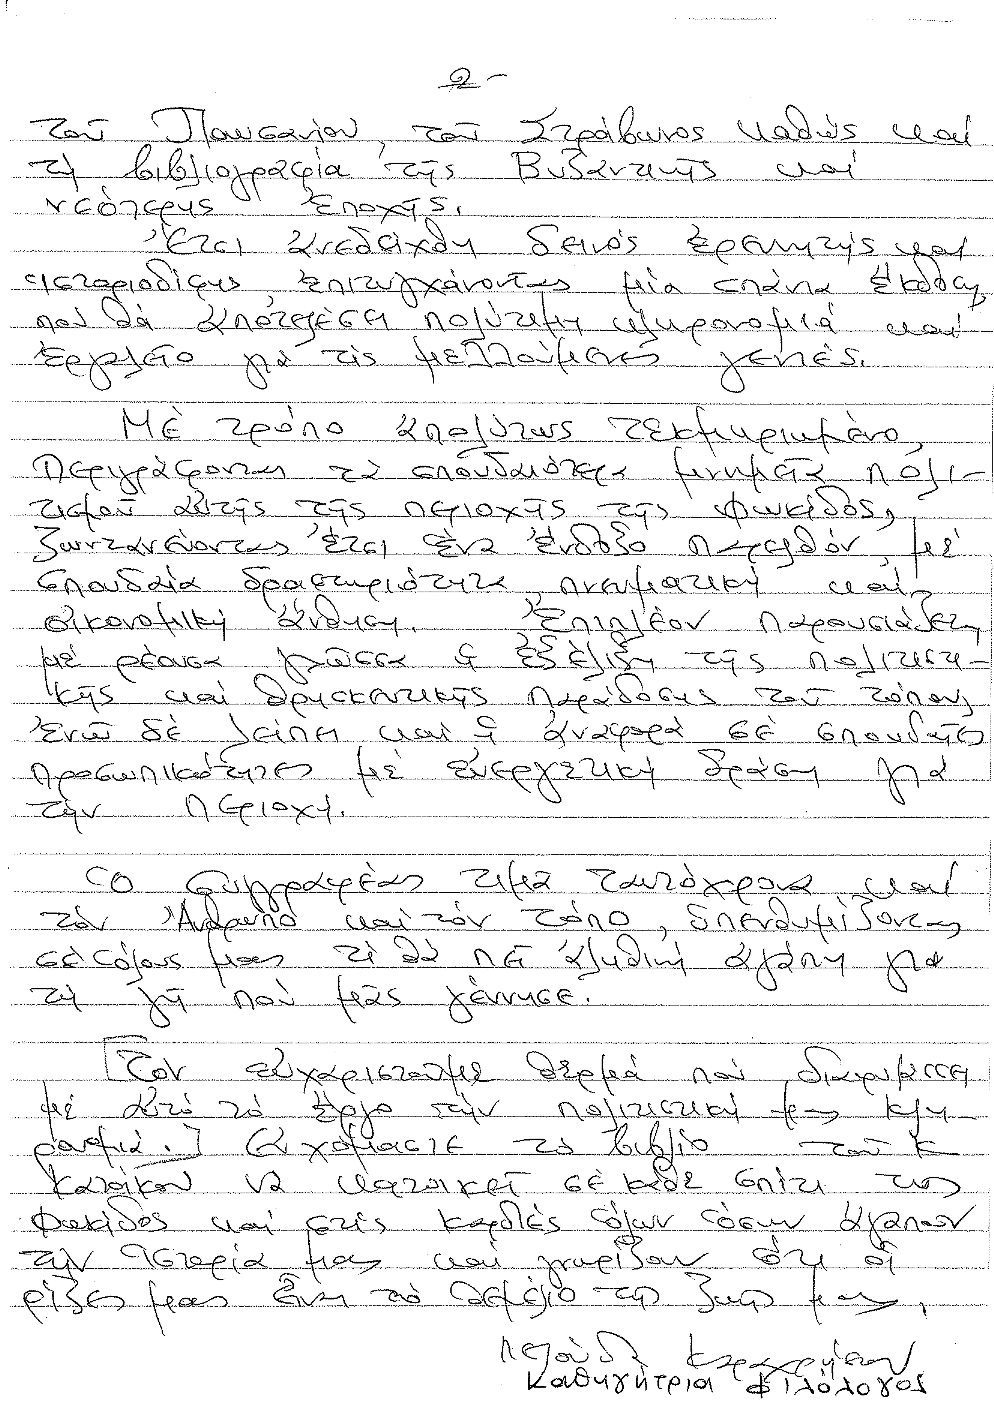 2 -
τοῦ Παυσανίου, τοῦ Στράβωνος καθώς καί
τή βιβλιογραφία τῆς Βυζαντινῆς καί
νεότερης ἐποχῆς.
Ἔτσι ἀνεδείχθη δεινός ἐρευνητής καί
ἱστοριοδίφης, ἐπιτυγχάνοντας μία σπάνια ἔκδοση,
πού θά ἀποτελέσει πολύτιμη κληρονομιά καί
ἐργαλεῖο γιά τίς μελλούμενες γενιές.
Μέ τρόπο ἀπολύτως τεκμηριωμένο,
περιγράφοντας τά σπουδαιότερα μνημεῖα πολι-
τισμοῦ αὐτῆς τῆς περιοχῆς τῆς Φωκίδος,
ζωντανεύοντας ἔτσι ἕνα ἔνδοξο παρελθόν, μέ
σπουδαία δραστηριότητα, πνευματική καί
οἰκονομική ἄνθηση. Ἐπιπλέον παρουσιάζεται
μέ ρέουσα γλῶσσα ἡ ἐξέλιξη τῆς πολιτιστι-
κῆς καί θρησκευτικῆς παράδοσης τοῦ τόπου,
ἐνῶ δέ λείπει καί ἡ ἀναφορά σέ σπουδαῖες
προσωπικότητες μέ εὐεργετική δράση γιά
τήν περιοχή.
Ὁ συγγραφέας τιμᾶ ταυτόχρονα καί
τόν Ἄνθρωπο καί τόν τόπο, ὑπενθυμίζοντας
σέ ὅλους μας τί θά πεῖ ἀληθινή ἀγάπη γιά
τή γῆ πού μᾶς γέννησε.
Τόν εὐχαριστοῦμε θερμά πού διαφύλαξε
μέ αὐτό τό ἔργο τήν πολιτιστική μας κλη-
ρονομιά. Εὐχόμαστε τό βιβλίο τοῦ κ.
Κατσίκου νά κατοικεῖ σέ κάθε σπίτι τῆς
Φωκίδος καί στίς καρδιές ὅλων ὅσων ἀγαποῦν
τήν ἱστορία μας καί γνωρίζουν ὅτι οἱ
ρίζες μας εἶναι τό θεμέλιο τῆς ζωῆς μας.
Καθηγήτρια Φιλόλογος